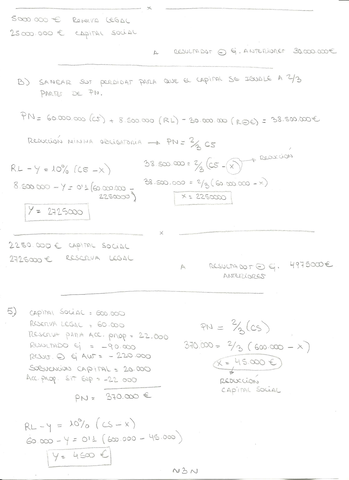 x
5000 000 € RESERVA LEGAL
25 000 000 € CAPITAL SOCIAL
A RESULTADOS ⊖ Ej. ANTERIORES 30 000 000€
B) SANEAR SUS PERDIDAS PARA QUE EL CAPITAL SE IGUALE A 2/3
PARTE DE PN.
PN = 60 000 000 (CS) + 8 500 000 (RL) - 30 000 000 (R⊖Ej) = 38.500.000€
REDUCCIÓN MINIMA OBLIGATORIA → PN = 2/3 CS
38.500.000 = 2/3 (CS - X) → REDUCCIÓN
RL - Y = 10% (CS - X)
38.500.000 = 2/3 (60 000 000 - X)
8.500.000 - Y = 0'1 (60 000 000 - 2250000)
X = 2250000
Y = 2725000
x
2250 000 € CAPITAL SOCIAL
2725000 € RESERVA LEGAL
A RESULTADOS ⊖ Ej. ANTERIORES 4975000€
5) CAPITAL SOCIAL = 600.000
RESERVA LEGAL = 60.000
RESERVA PARA ACC. PROP = 22.000
RESULTADO Ej = -90.000
RESULT. ⊖ Ej ANT = -220.000
SUBVENCIÓN CAPITAL = 20.000
ACC. PROP. SIT ESP = -22 000
PN = 370.000 €
PN = 2/3 (CS)
370.000 = 2/3 (600.000 - X)
X = 45.000 €
REDUCCIÓN
CAPITAL SOCIAL
RL - Y = 10% (CS - X)
60.000 - Y = 0'1 (600.000 - 45.000)
Y = 4500 €
N3N